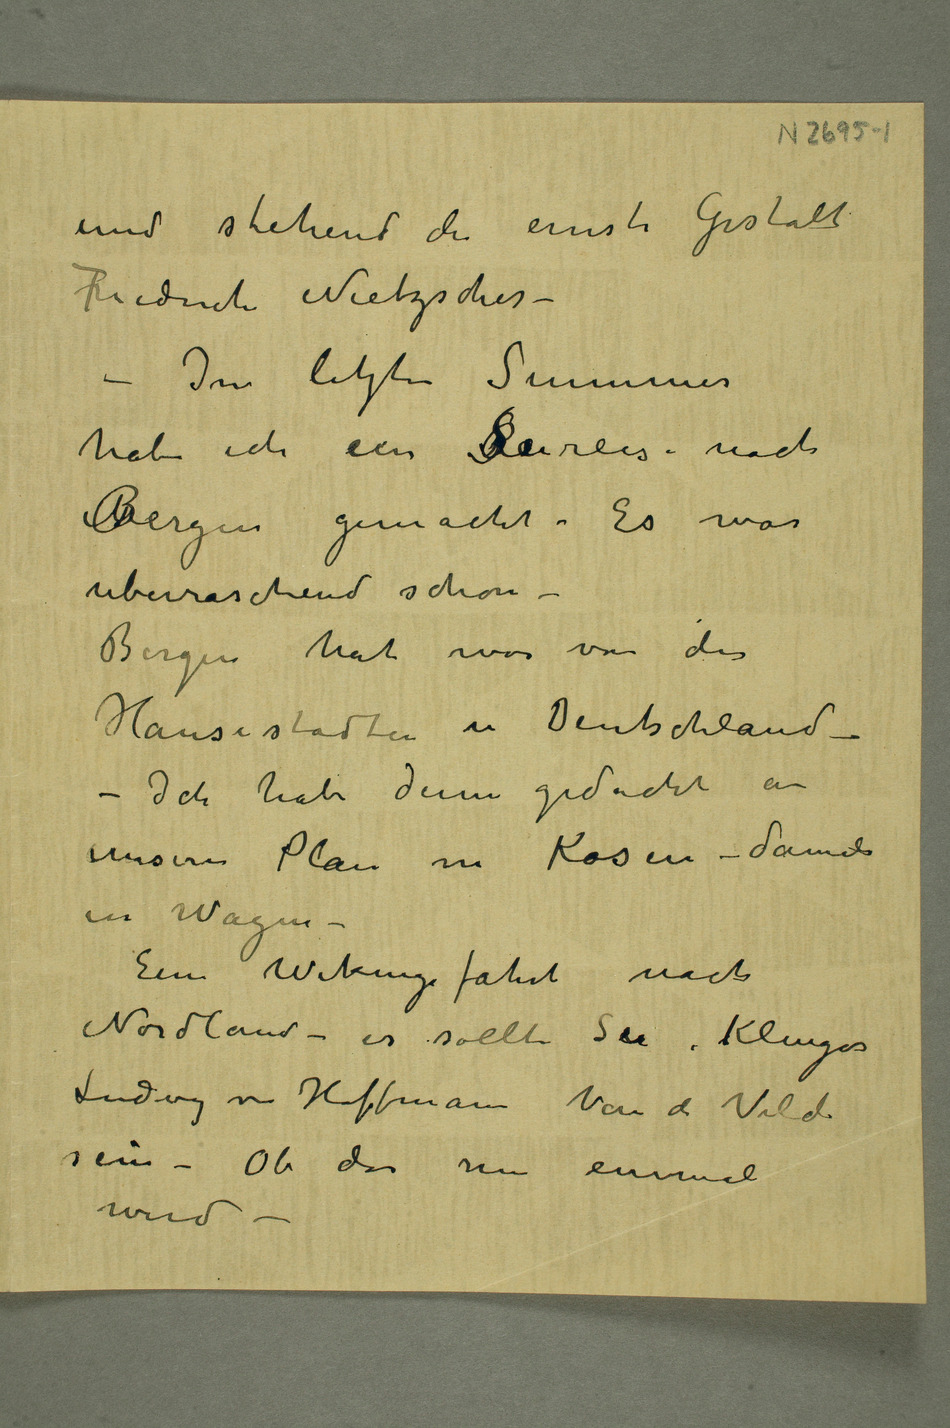 N 2695-1
und stehend die ernste Gestalt
Friedrich Nietzsches –
– Im letzten Summmer
habe ich ein Seereise nach
Bergen gemacht. Es war
uberraschend schon –
Bergen hat was von den
Hansestadten in Deutschland –
– Ich habe denn gedacht an
unseren Plan in Kosen – damals
im Wagen –
Eine Wikingefahrt nach
Nordland – es sollte Sie, Klinger
Ludvig v Hoffmann Van de Velde
sein – Ob das nun einmal
wird –